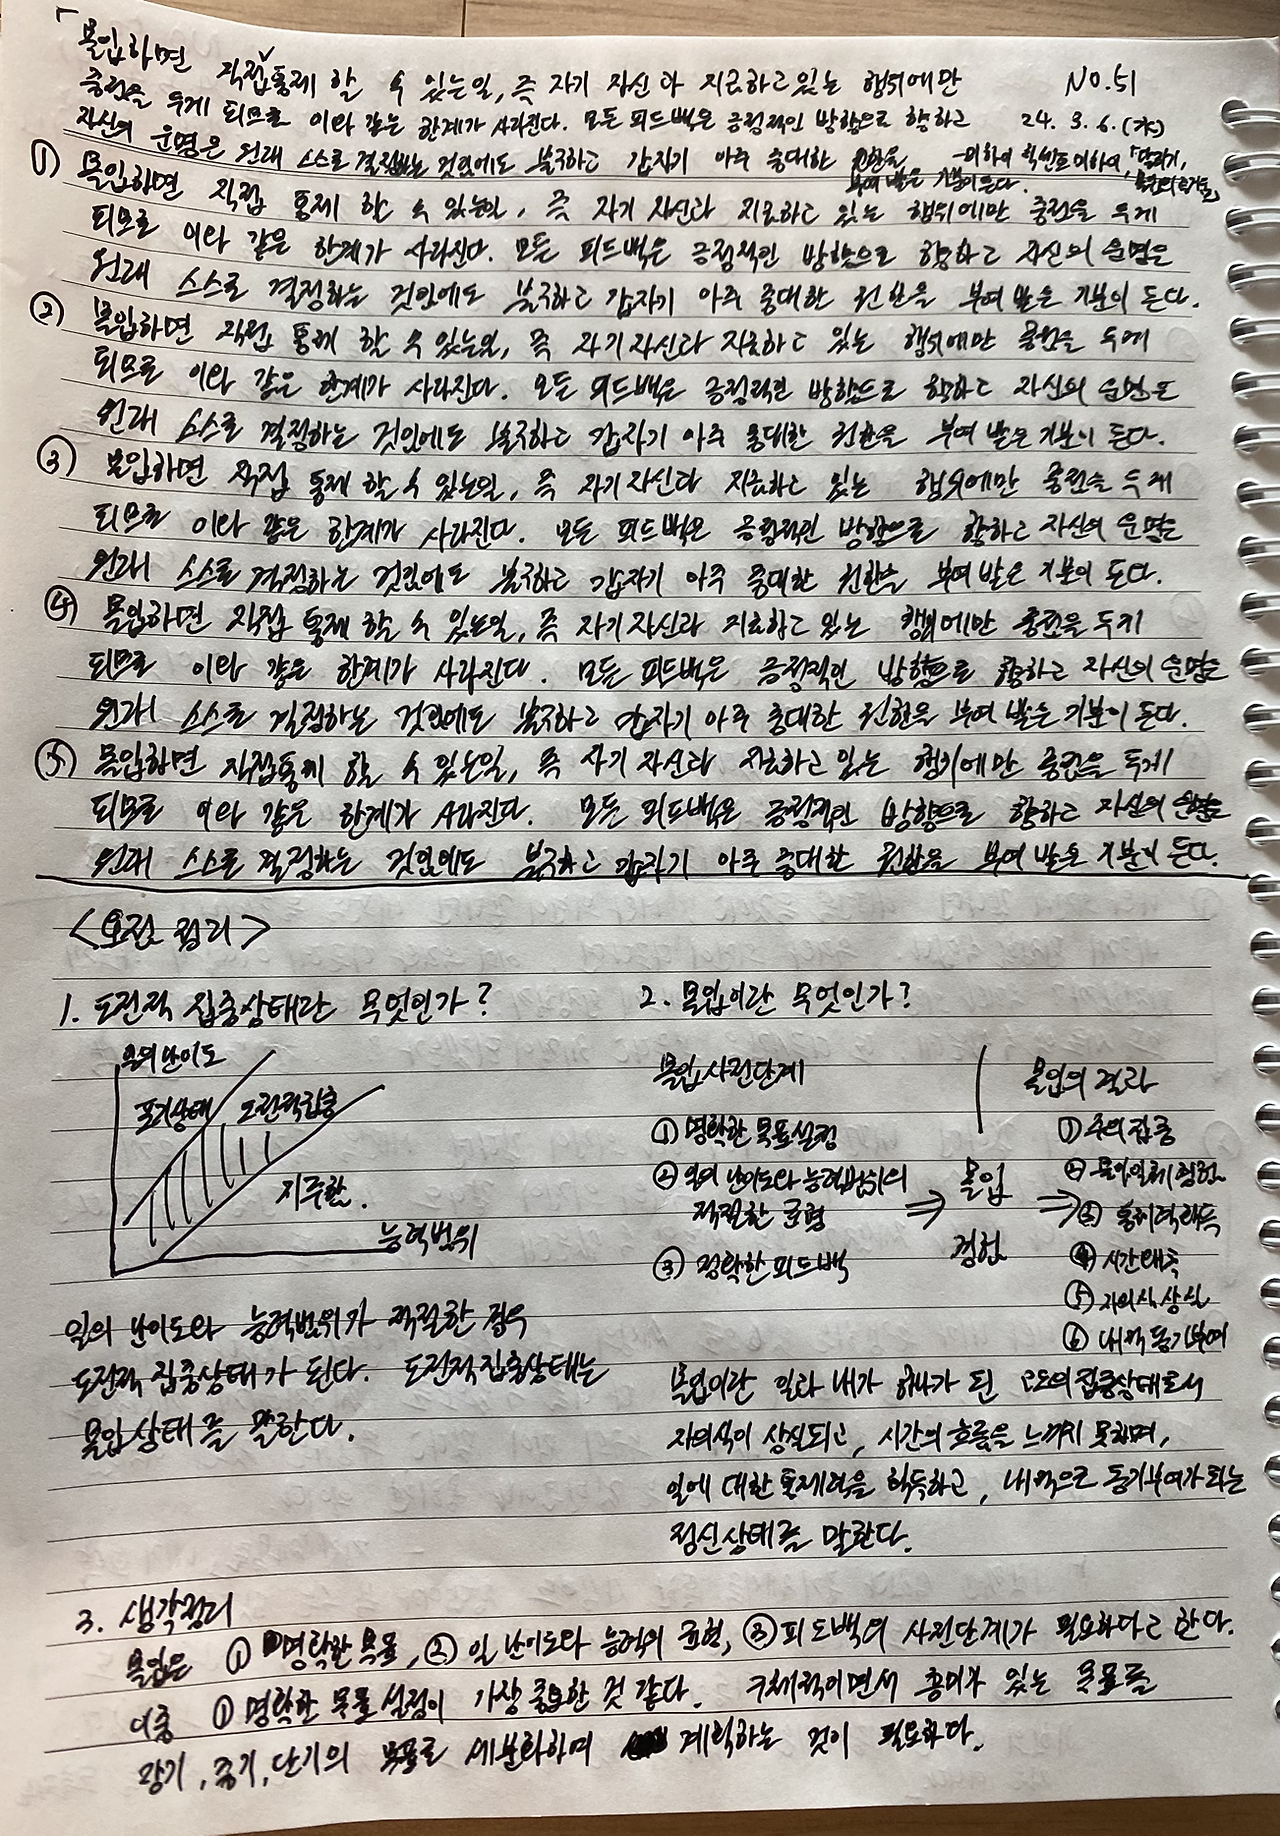 「몰입하면 직접 통제 할 수 있는일, 즉 자기 자신과 지금하고있는 행위에만
No.51
중점을 두게 되므로 이와 같은 한계가 사라진다. 모든 피드백은 긍정적인 방향으로 향하고
24. 3. 6. (水)
자신의 운명은 원래 스스로 결정하는 것임에도 불구하고 갑자기 아주 중대한 권한을
부여 받은 기분이 든다.
-미하이 칙센트미하이,
① 몰입하면 직접 통제 할 수 있는일, 즉 자기 자신과 지금하고 있는 행위에만 중점을 두게
되므로 이와 같은 한계가 사라진다. 모든 피드백은 긍정적인 방향으로 향하고 자신의 운명은
원래 스스로 결정하는 것임에도 불구하고 갑자기 아주 중대한 권한을 부여 받은 기분이 든다.
② 몰입하면 직접 통제 할 수 있는일, 즉 자기 자신과 지금하고 있는 행위에만 중점을 두게
되므로 이와 같은 한계가 사라진다. 모든 피드백은 긍정적인 방향으로 향하고 자신의 운명은
원래 스스로 결정하는 것임에도 불구하고 갑자기 아주 중대한 권한을 부여 받은 기분이 든다.
③ 몰입하면 직접 통제 할 수 있는일, 즉 자기 자신과 지금하고 있는 행위에만 중점을 두게
되므로 이와 같은 한계가 사라진다. 모든 피드백은 긍정적인 방향으로 향하고 자신의 운명은
원래 스스로 결정하는 것임에도 불구하고 갑자기 아주 중대한 권한을 부여 받은 기분이 든다.
④ 몰입하면 직접 통제 할 수 있는일, 즉 자기 자신과 지금하고 있는 행위에만 중점을 두게
되므로 이와 같은 한계가 사라진다. 모든 피드백은 긍정적인 방향으로 향하고 자신의 운명은
원래 스스로 결정하는 것임에도 불구하고 갑자기 아주 중대한 권한을 부여 받은 기분이 든다.
⑤ 몰입하면 직접통제 할 수 있는일, 즉 자기 자신과 지금하고 있는 행위에만 중점을 두게
되므로 이와 같은 한계가 사라진다. 모든 피드백은 긍정적인 방향으로 향하고 자신의 운명은
원래 스스로 결정하는 것임에도 불구하고 갑자기 아주 중대한 권한을 부여 받은 기분이 든다.
<오전 정리>
1. 도전적 집중상태란 무엇인가?
일의 난이도
포기상태
도전적집중
지루함.
능력범위
일의 난이도와 능력범위가 적절한 경우
도전적 집중상태가 된다. 도전적 집중상태는
몰입상태를 말한다.
2. 몰입이란 무엇인가?
몰입사전단계
① 명확한 목표설정
② 일의 난이도와 능력범위의
적절한 균형
③ 정확한 피드백
⇒ 몰입
경험
⇒
몰입의 결과
① 주의집중
② 몰입일체 경험
③ 통제력획득
④ 시간왜곡
⑤ 자의식 상실
⑥ 내적 동기부여
몰입이란 일과 내가 하나가 된 고도의 집중상태로서
자의식이 상실되고, 시간의 흐름을 느끼지 못하며,
일에 대한 통제력을 획득하고, 내적으로 동기부여가 되는
정신상태를 말한다.
3. 생각정리
몰입은 ① 명확한 목표, ② 일 난이도와 능력의 균형, ③ 피드백의 사전단계가 필요하다고 한다.
이중 ① 명확한 목표설정이 가장 중요한 것 같다. 구체적이면서 흥미가 있는 목표를
장기, 중기, 단기의 목표로 세분화하며 계획하는 것이 필요하다.